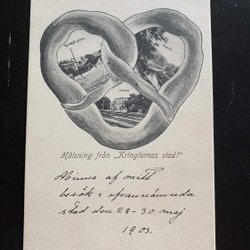 Hälsning från „Kringlornas stad!"
Minne af mitt
besök i ofvannämnda
stad den 29-30 maj
1903.